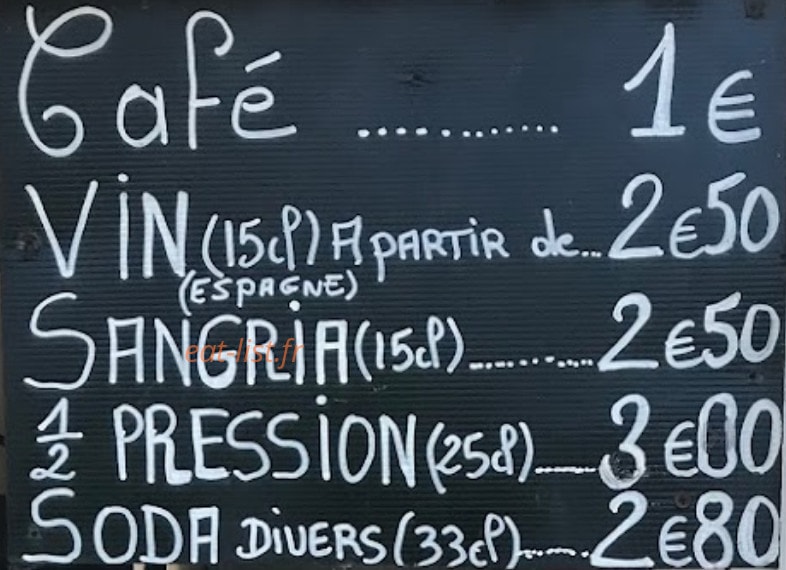 Café ............ 1€
VIN (15cl) A PARTIR de... 2€50
(ESPAGNE)
SANGRIA (15cl) ............ 2€50
eat-list.fr
1/2 PRESSION (25cl) ...... 3€00
SODA DIVERS (33cl) ....... 2€80